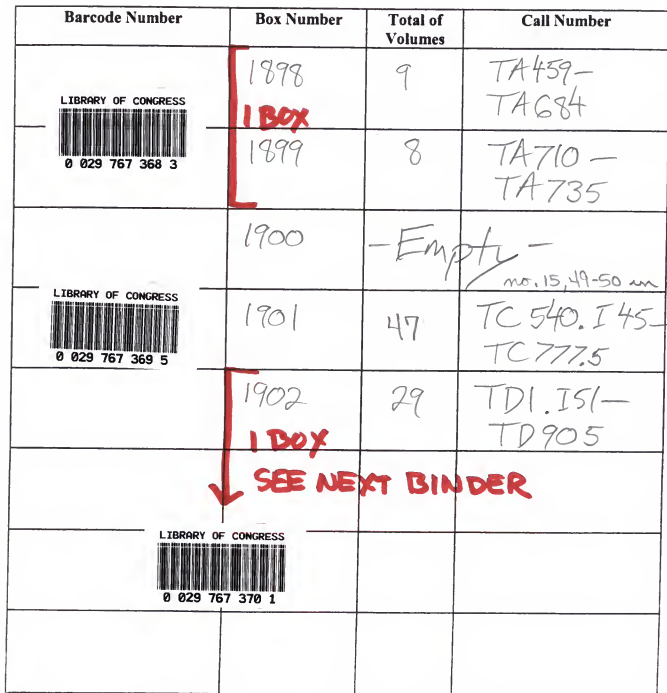 Barcode Number Box Number Total of Volumes Call Number
LIBRARY OF CONGRESS
0 029 767 368 3
1898 9 TA459-
TA684
1 BOX
1899 8 TA710 -
TA735
1900 -Empty-
no. 15, 49-50 in
LIBRARY OF CONGRESS
0 029 767 369 5
1901 47 TC 540. I 45-
TC 777.5
1902 29 TD1. I51-
TD905
1 BOX
SEE NEXT BINDER
LIBRARY OF CONGRESS
0 029 767 370 1